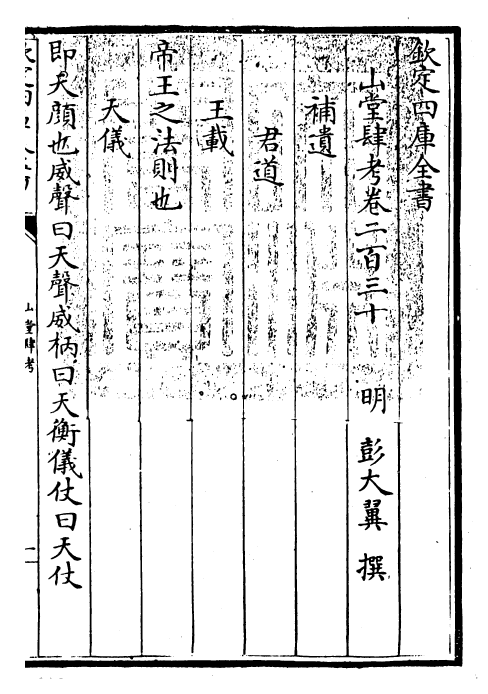 欽定四庫全書
山堂肆考卷二百三十　明　彭大翼　撰
補遺
君道
王載
帝王之法則也
天儀
即天顔也威聲曰天聲威柄曰天衡儀仗曰天仗
山堂肆考
一